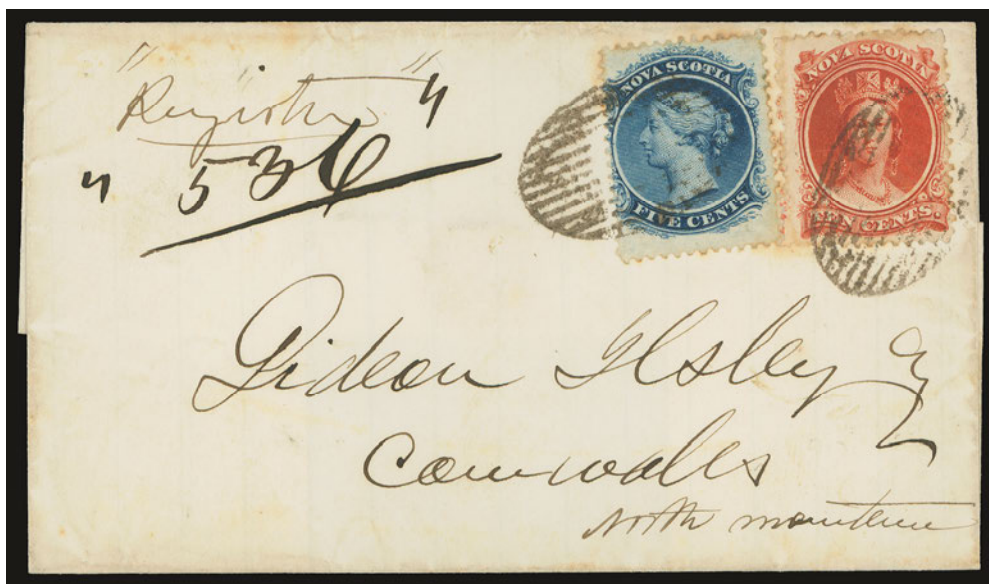 "Register"
" 536 "
NOVA SCOTIA
FIVE CENTS
NOVA SCOTIA
TEN CENTS.
Gideon Ilsley
Cornwallis
North mountain